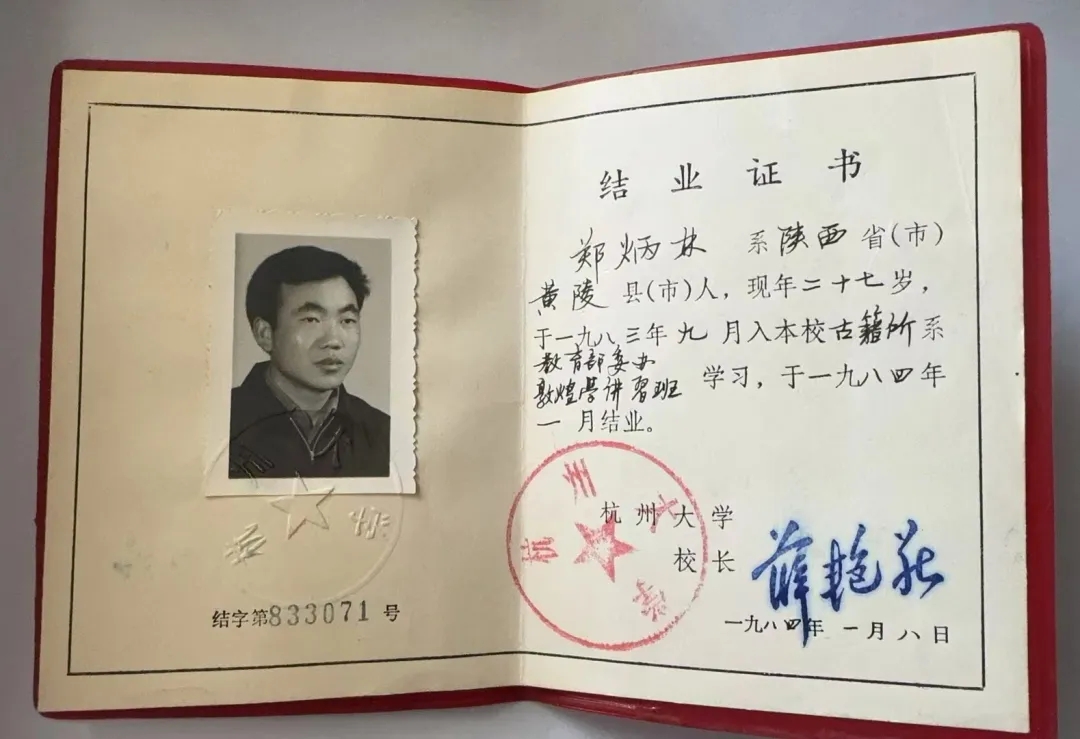 结字第833071号
结业证书
郑炳林 系陕西省(市)
黄陵县(市)人，现年二十七岁，
于一九八三年九月入本校古籍所系
教育部委办
敦煌学讲习班 学习，于一九八四年
一月结业。
杭州大学
校长 薛艳庄
一九八四年一月八日
杭州大学